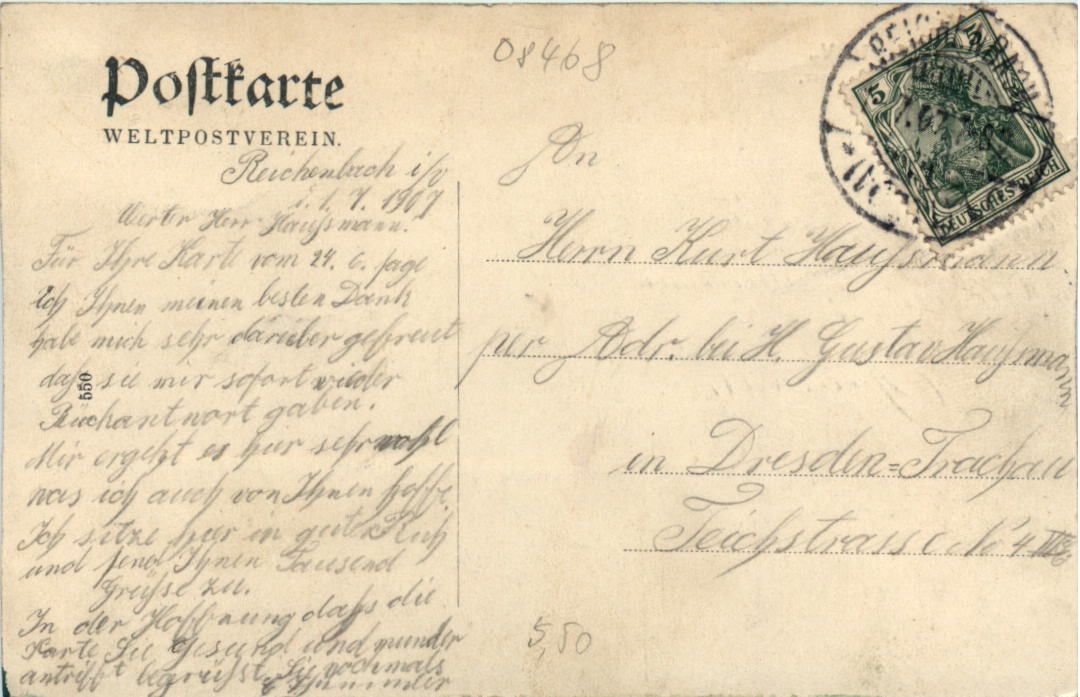 Postkarte
WELTPOSTVEREIN.
08468
5
DEUTSCHES REICH
Reichenbach i/V
1. 7. 1907
Werter Herr Haufsmann.
Für Ihre Karte vom 24. c. sage
ich Ihnen meinen besten Dank
habe mich sehr darüber gefreut
dafs sie mir sofort wieder
Rückantwort gaben.
Mir ergeht es hier sehr wohl
was ich auch von Ihnen hoffe.
Ich sitze hier in guter
und send Ihnen Tausend
Grüfse zu.
In der Hoffnung dafs die
Karte Sie Gesund und munder
antrifft begrüsst Sie nochmals
An
Herrn Kurt Haufsmann.
per Adr. bei H. Gustav Haufsmann
in Dresden=Trachau
Teichstrasse No 4 III
550
5,50